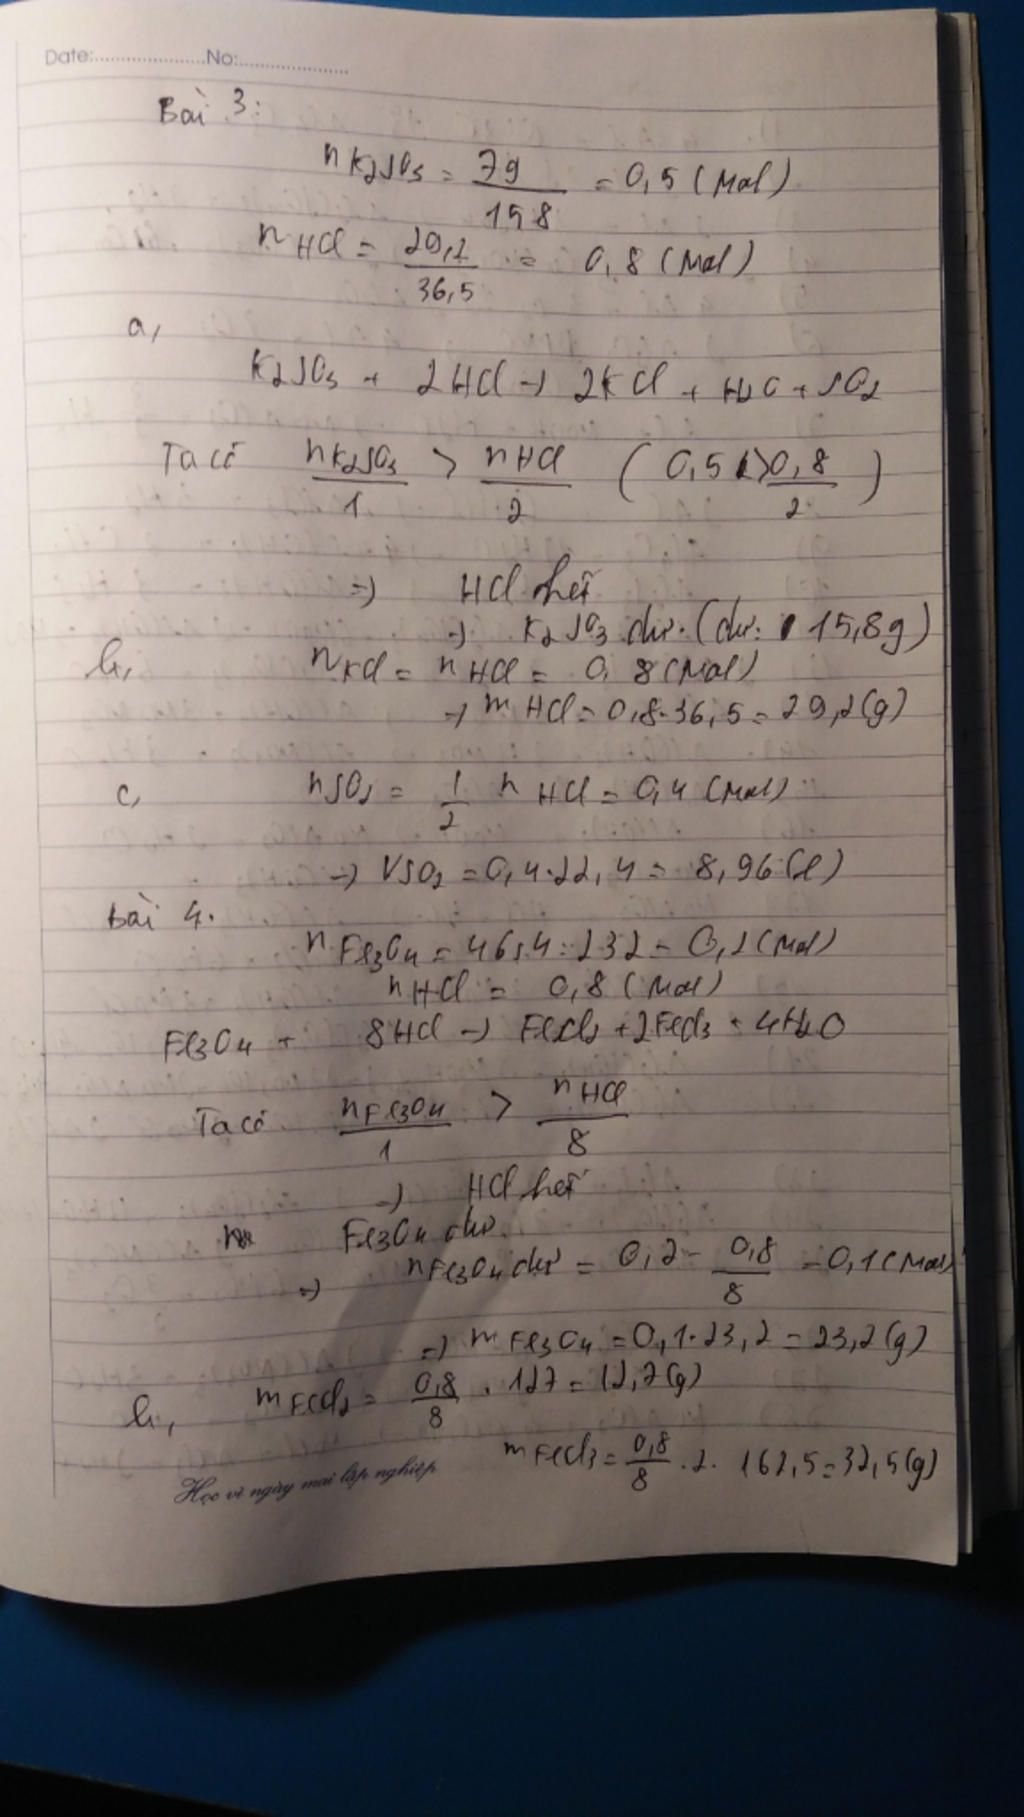 Date:....................No:....................
Bài 3:
nK2SO3 = 79/158 = 0,5 (Mol)
nHCl = 29,2/36,5 = 0,8 (Mol)
a,
K2SO3 + 2HCl → 2KCl + H2O + SO2
Ta có nK2SO3/1 > nHCl/2 (0,5 > 0,8/2)
=) HCl hết
→ K2SO3 dư. (dư: 15,8g)
b, nKCl = nHCl = 0,8 (Mol)
→ mHCl = 0,8.36,5 = 29,2(g)
c, nSO2 = 1/2 nHCl = 0,4 (Mol)
→ VSO2 = 0,4.22,4 = 8,96 (l)
Bài 4.
nFe3O4 = 46,4:232 = 0,2 (Mol)
nHCl = 0,8 (Mol)
Fe3O4 + 8HCl → FeCl2 + 2FeCl3 + 4H2O
Ta có nFe3O4/1 > nHCl/8
→ HCl hết
Fe3O4 dư.
=) nFe3O4 dư = 0,2 - 0,8/8 = 0,1 (Mol)
=) mFe3O4 = 0,1.23,2 = 23,2(g)
b, mFeCl2 = 0,8/8 . 127 = 12,7(g)
mFeCl3 = 0,8/8 .2. 162,5 = 32,5(g)
Học vì ngày mai lập nghiệp